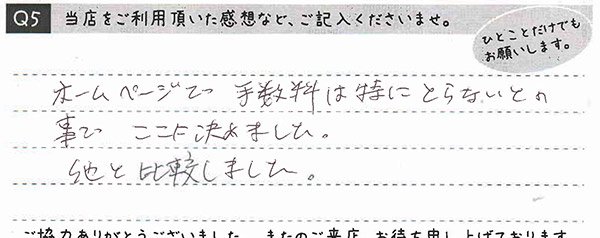 Q5 当店をご利用頂いた感想など、ご記入くださいませ。
ひとことだけでも
お願いします。
ホームページで 手数料は特にとらないとの
事で ここに決めました。
他と比較しました。
ご協力ありがとうございました。またのご来店、お待ち申し上げております